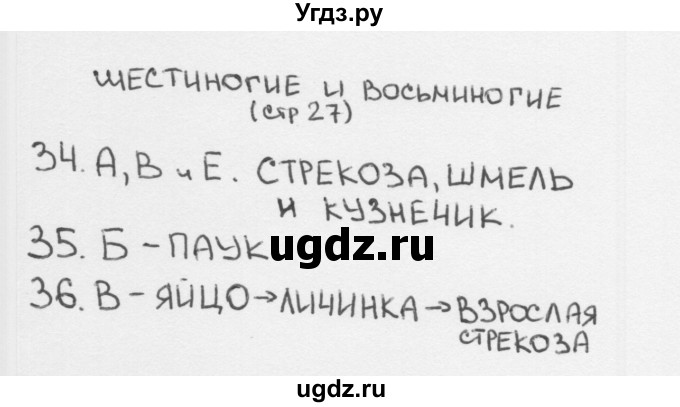 Угдз.ру
ШЕСТИНОГИЕ И ВОСЬМИНОГИЕ
(стр 27)
34. А, В и Е. СТРЕКОЗА, ШМЕЛЬ
И КУЗНЕЧИК.
35. Б - ПАУК
ugdz.ru
36. В - ЯЙЦО → ЛИЧИНКА → ВЗРОСЛАЯ
СТРЕКОЗА
ugdz.ru